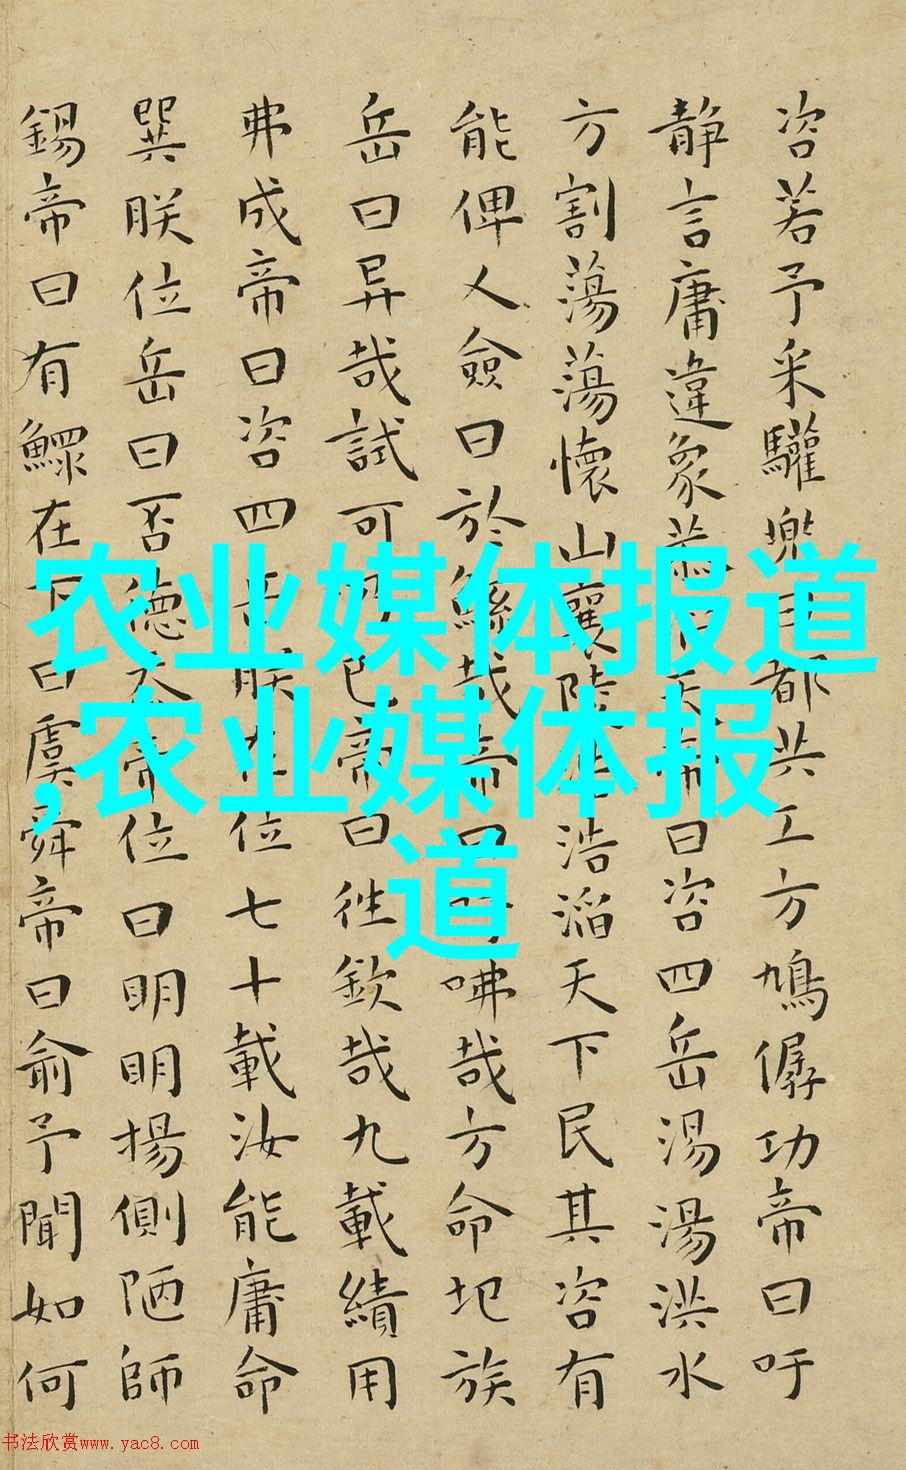 咨若予采驩兜曰都共工方鳩僝功帝曰吁
静言庸違象恭天帝曰咨四岳湯湯洪水
方割蕩蕩懷山襄陵浩滔天下民其咨有
能俾乂僉曰於鯀哉帝曰吁咈哉方命圮族
岳曰异哉試可乃已帝曰往欽哉九載績用
弗成帝曰咨四岳朕在位七十載汝能庸命
巽朕位岳曰否德忝帝位曰明明揚側陋師
錫帝曰有鰥在下曰虞舜帝曰俞予聞如何
农业媒体报道
,农业媒体报
道
书法欣赏www.yac8.com